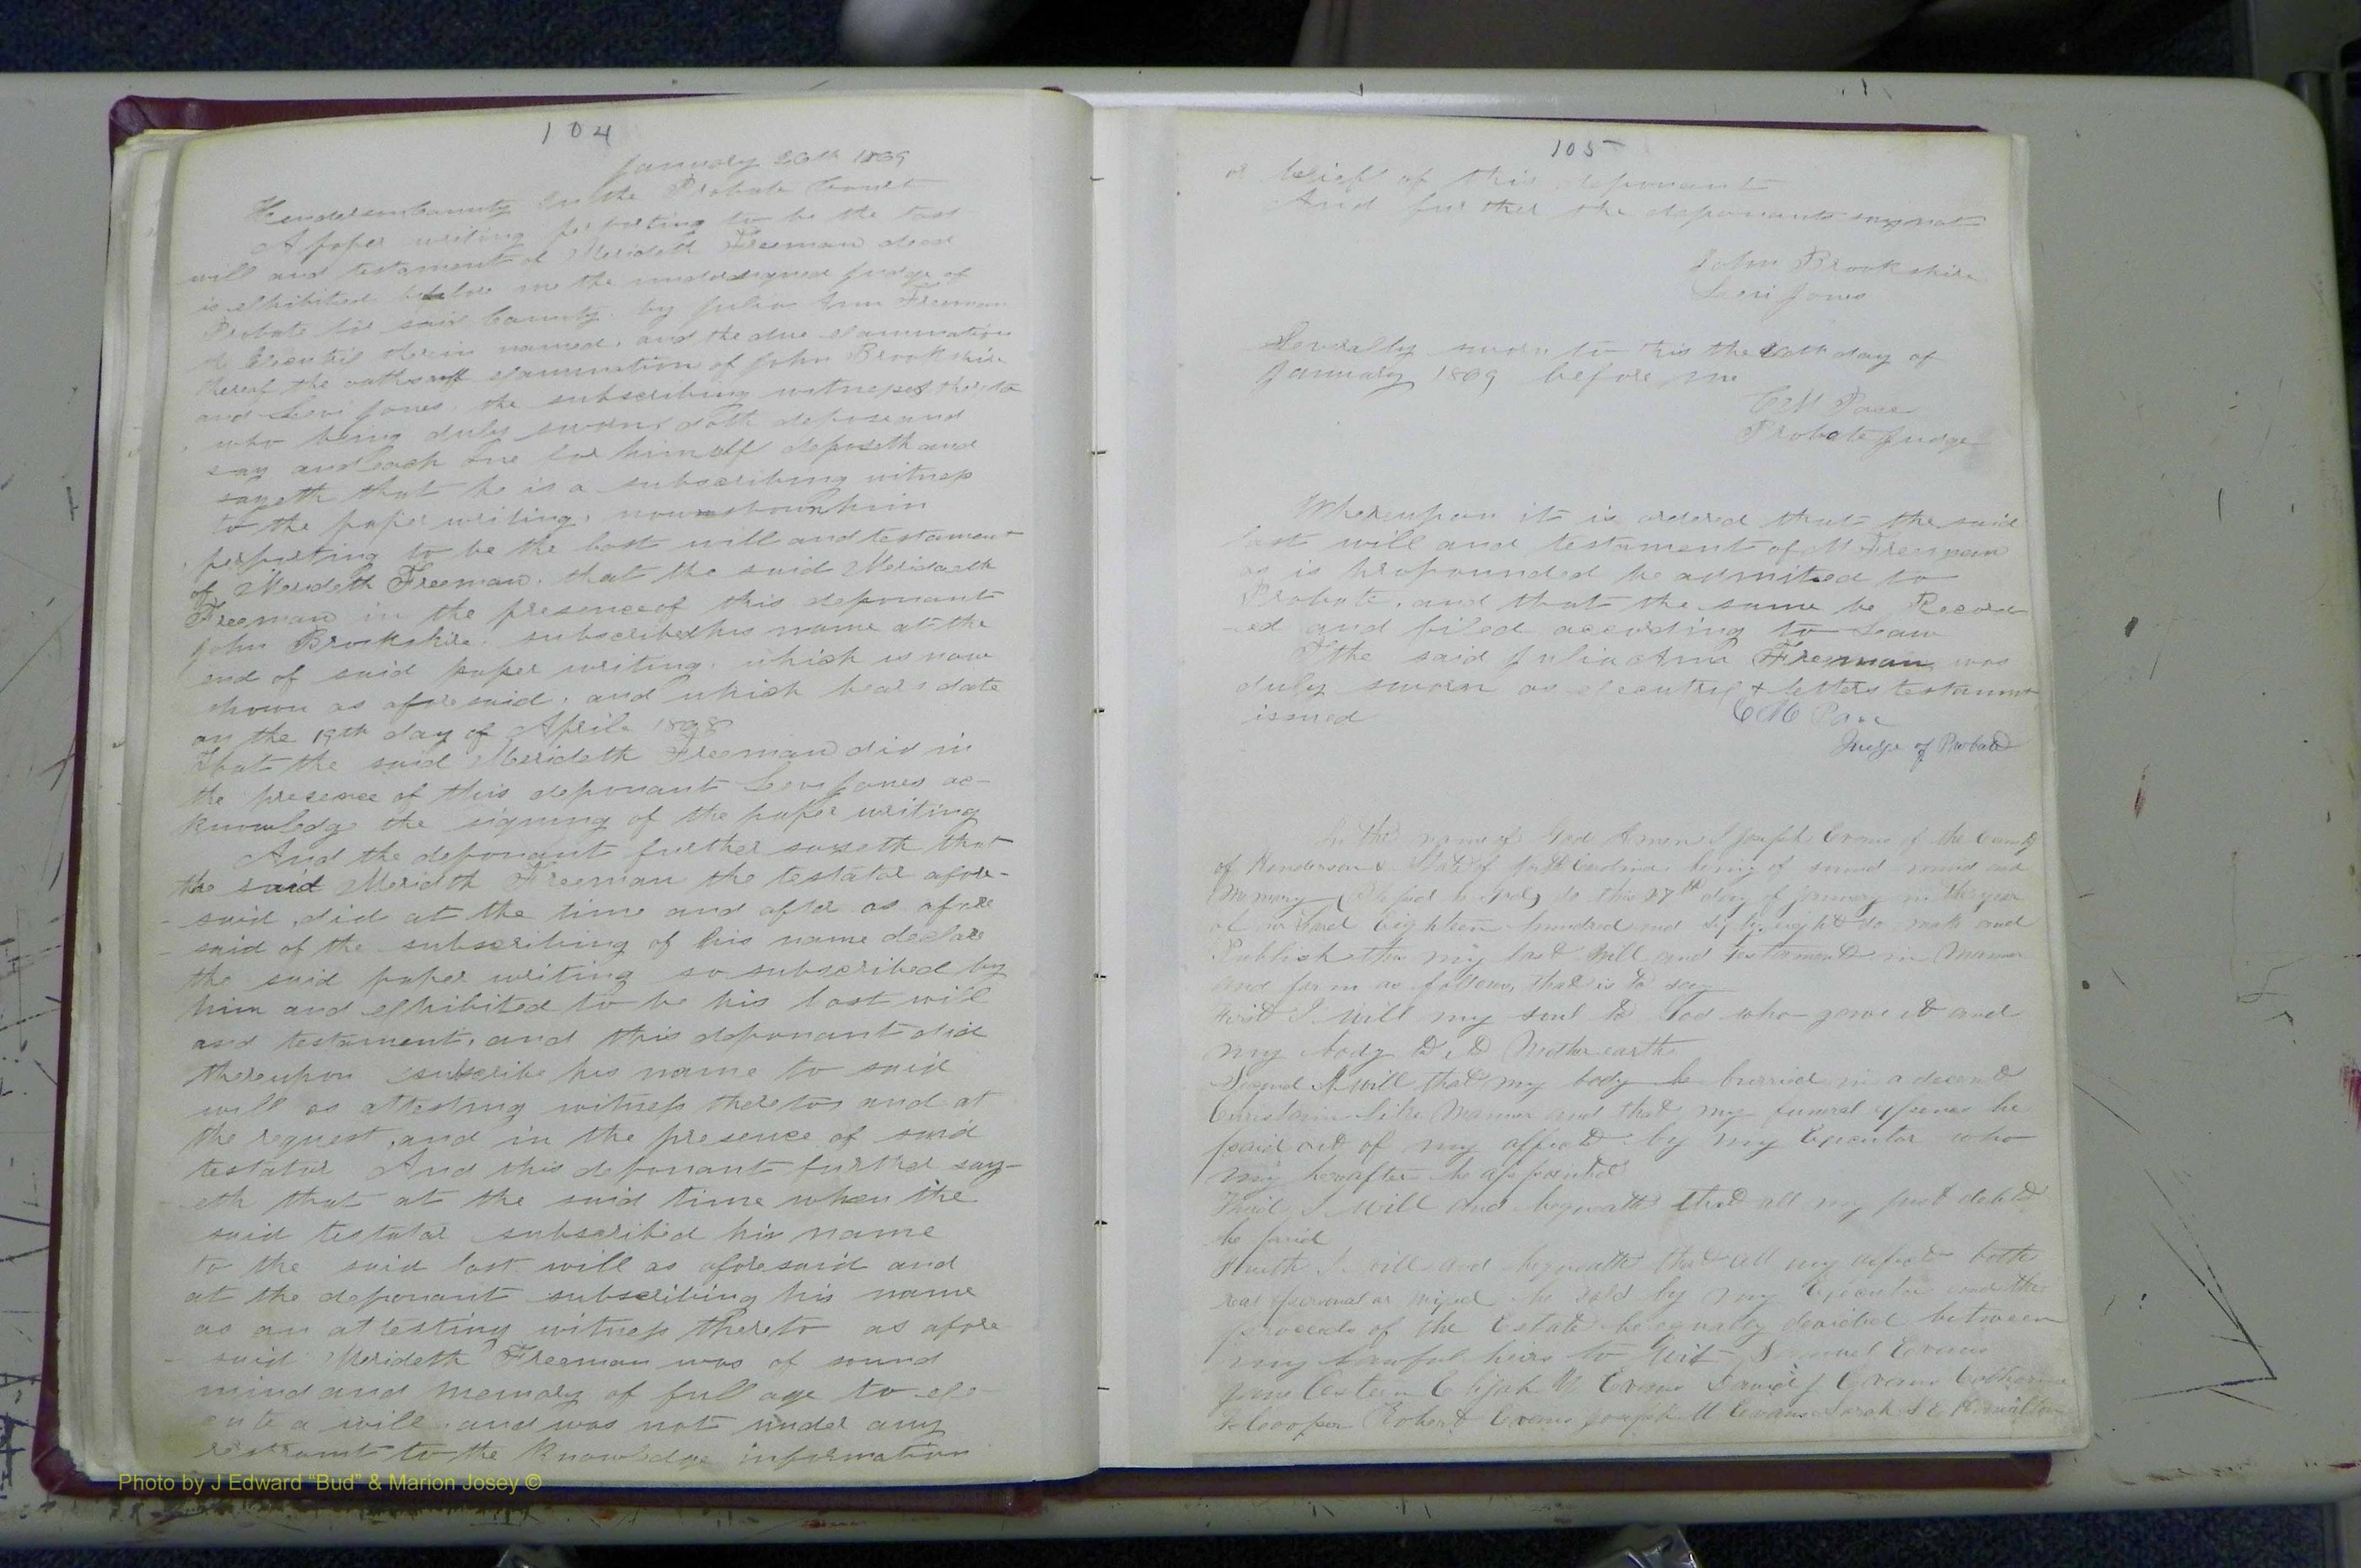 104
January 20th 1869
Henderson County In the Probate Court
A paper writing purporting to be the last
will and testament of Merideth Freeman decd
is exhibited before me the undersigned judge of
Probate for said County. by Julia Ann Freeman
the Executrix therein named. and the due examination
thereof the oaths examination of John Brookshire
and Levi Jones. the subscribing witnesses thereto
who being duly sworn doth depose and
say and each one for himself deposeth and
sayeth that he is a subscribing witness
to the paper writing, now shown him
purporting to be the last will and testament
of Merideth Freeman. that the said Merideth
Freeman in the presence of this deponant
John Brookshire. subscribed his name at the
end of said paper writing. which is now
shown as aforesaid. and which bears date
on the 19th day of April
that the said Merideth Freeman did in
the presence of this deponant Levi Jones ac-
knowledge the signing of the paper writing
And the deponant further sayeth that
the said Merideth Freeman the testator afore-
said, did at the time and after as afore
said of the subscribing of his name declare
the said paper writing so subscribed by
him and exhibited to be his last will
and testament, and this deponant did
thereupon subscribe his name to said
will as attesting witness thereto and at
the request, and in the presence of said
testator And this deponant further say-
eth that at the said time when the
said testator subscribed his name
to the said last will as aforesaid and
at the deponant subscribing his name
as an attesting witness thereto as afore
said Merideth Freeman was of sound
mind and memory of full age to exe-
cute a will. and was not under any
restraint to the knowledge information
105
or belief of this deponant
And further the deponants say not
John Brookshire
Levi Jones
Severally sworn to this the 20th day of
January 1869 before me
C M Pace
Probate Judge
Whereupon it is ordered that the said
last will and testament of M Freeman
as is propounded be admited to
Probate. and that the same be Record
-ed and filed according to Law
The said Julia Ann Freeman was
duly sworn as executrix & letters testament
issued
C M Pace
Judge of Probate
In the name of God Amen I Joseph Evans of the County
of Henderson & State of North Carolina being of sound mind and
Memory do this 27th day of January in the year
of our Lord Eighteen hundred and sixty eight do make and
Publish this my last Will and Testament in Manner
and form as follows, that is to say
First I will my soul to God who gave it and
my body to its Mother earth
Second I will that my body be burried in a decent
Christain like Manner and that my funeral expences be
paid out of my affects by my Executor who
may hereafter be appointed
Third I will and bequeath that all my just debts
be paid
Fourth I will and bequeath that all my affects both
real personal or mixed be sold by my Executor and the
proceeds of the Estate be equally devided between
my lawful heirs to Wit Samuel Evans
Jane Elijah Evans Daniel J Evans Catharine
Cooper Robert Evans Joseph Evans Sarah
Photo by J Edward “Bud” & Marion Josey ©